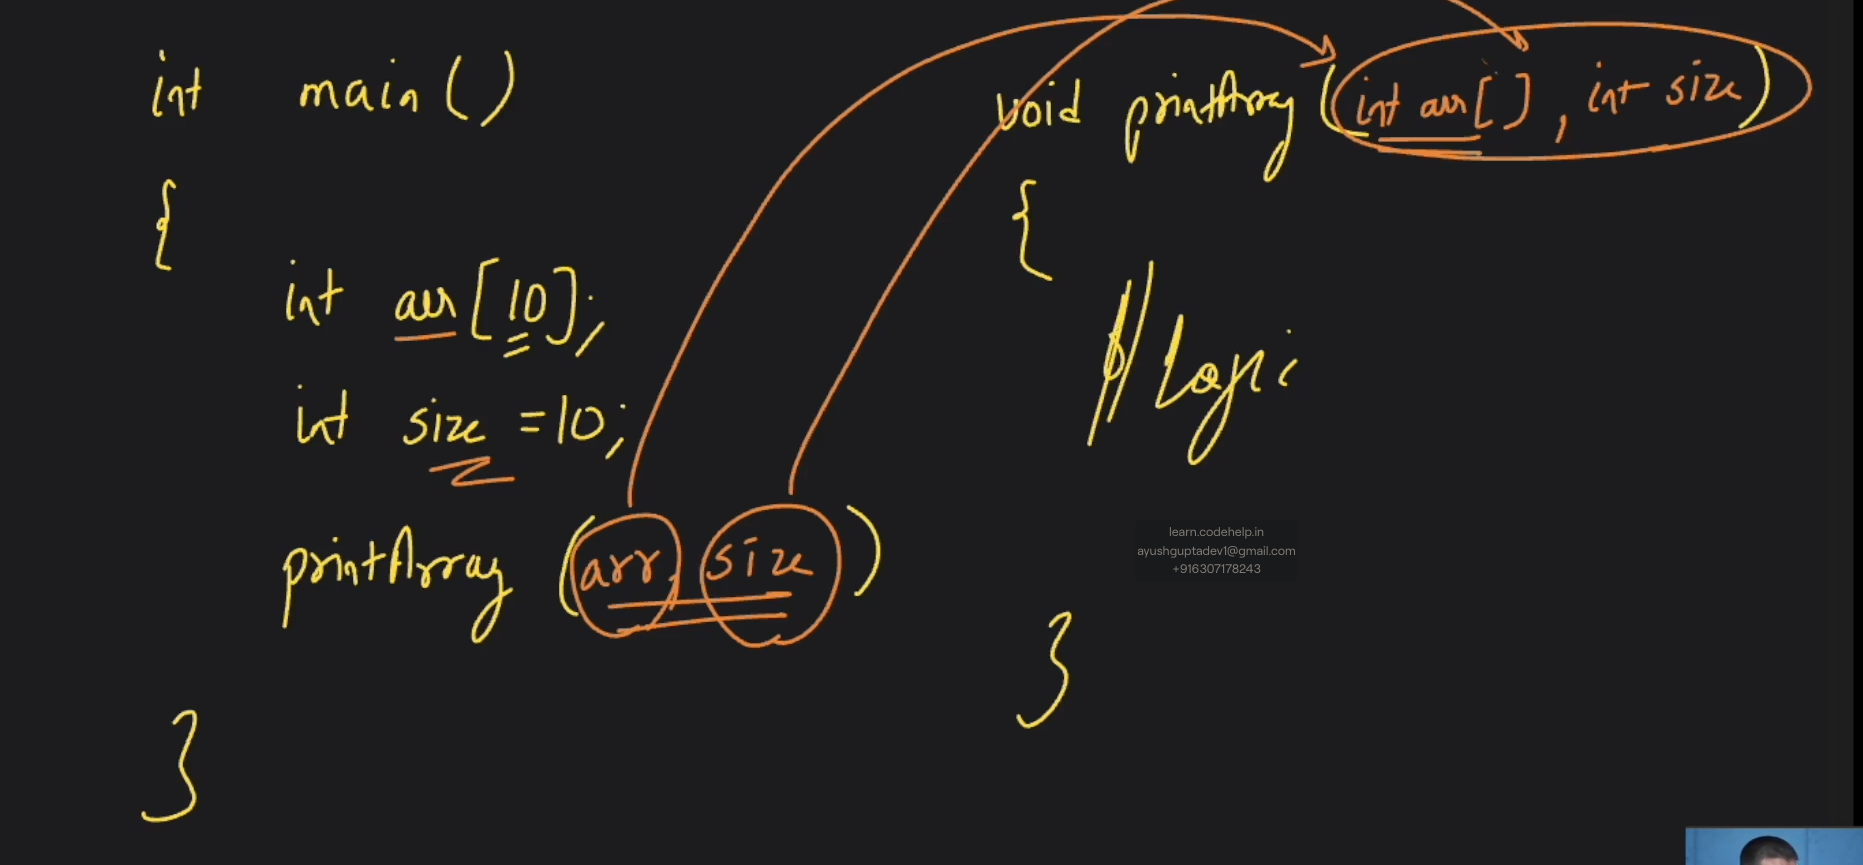 int main()
{
int arr[10];
int size =10;
printArray (arr, size)
}
void printArray (int arr[], int size)
{
// Logic
}
learn.codehelp.in
ayushguptadev1@gmail.com
+916307178243